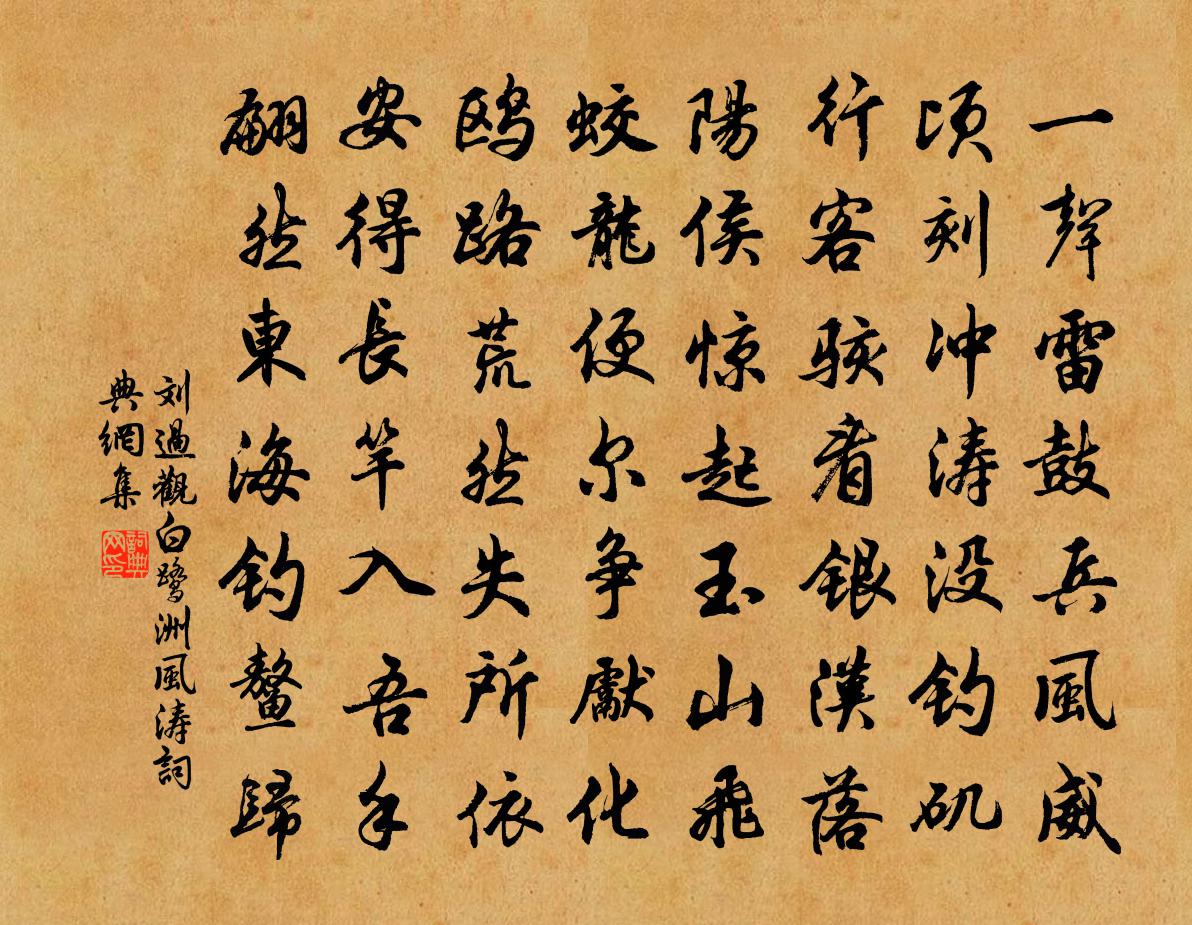 一聲雷鼓兵風威
頃刻冲涛没钓矶
行客骇看银漢落
陽侯惊起玉山飛
蛟龍便尔争獻化
鸥路荒然失所依
安得長竿入吾手
翩然東海钓鳌歸
刘過觀白鹭洲風涛詞
典網集
詞典网印